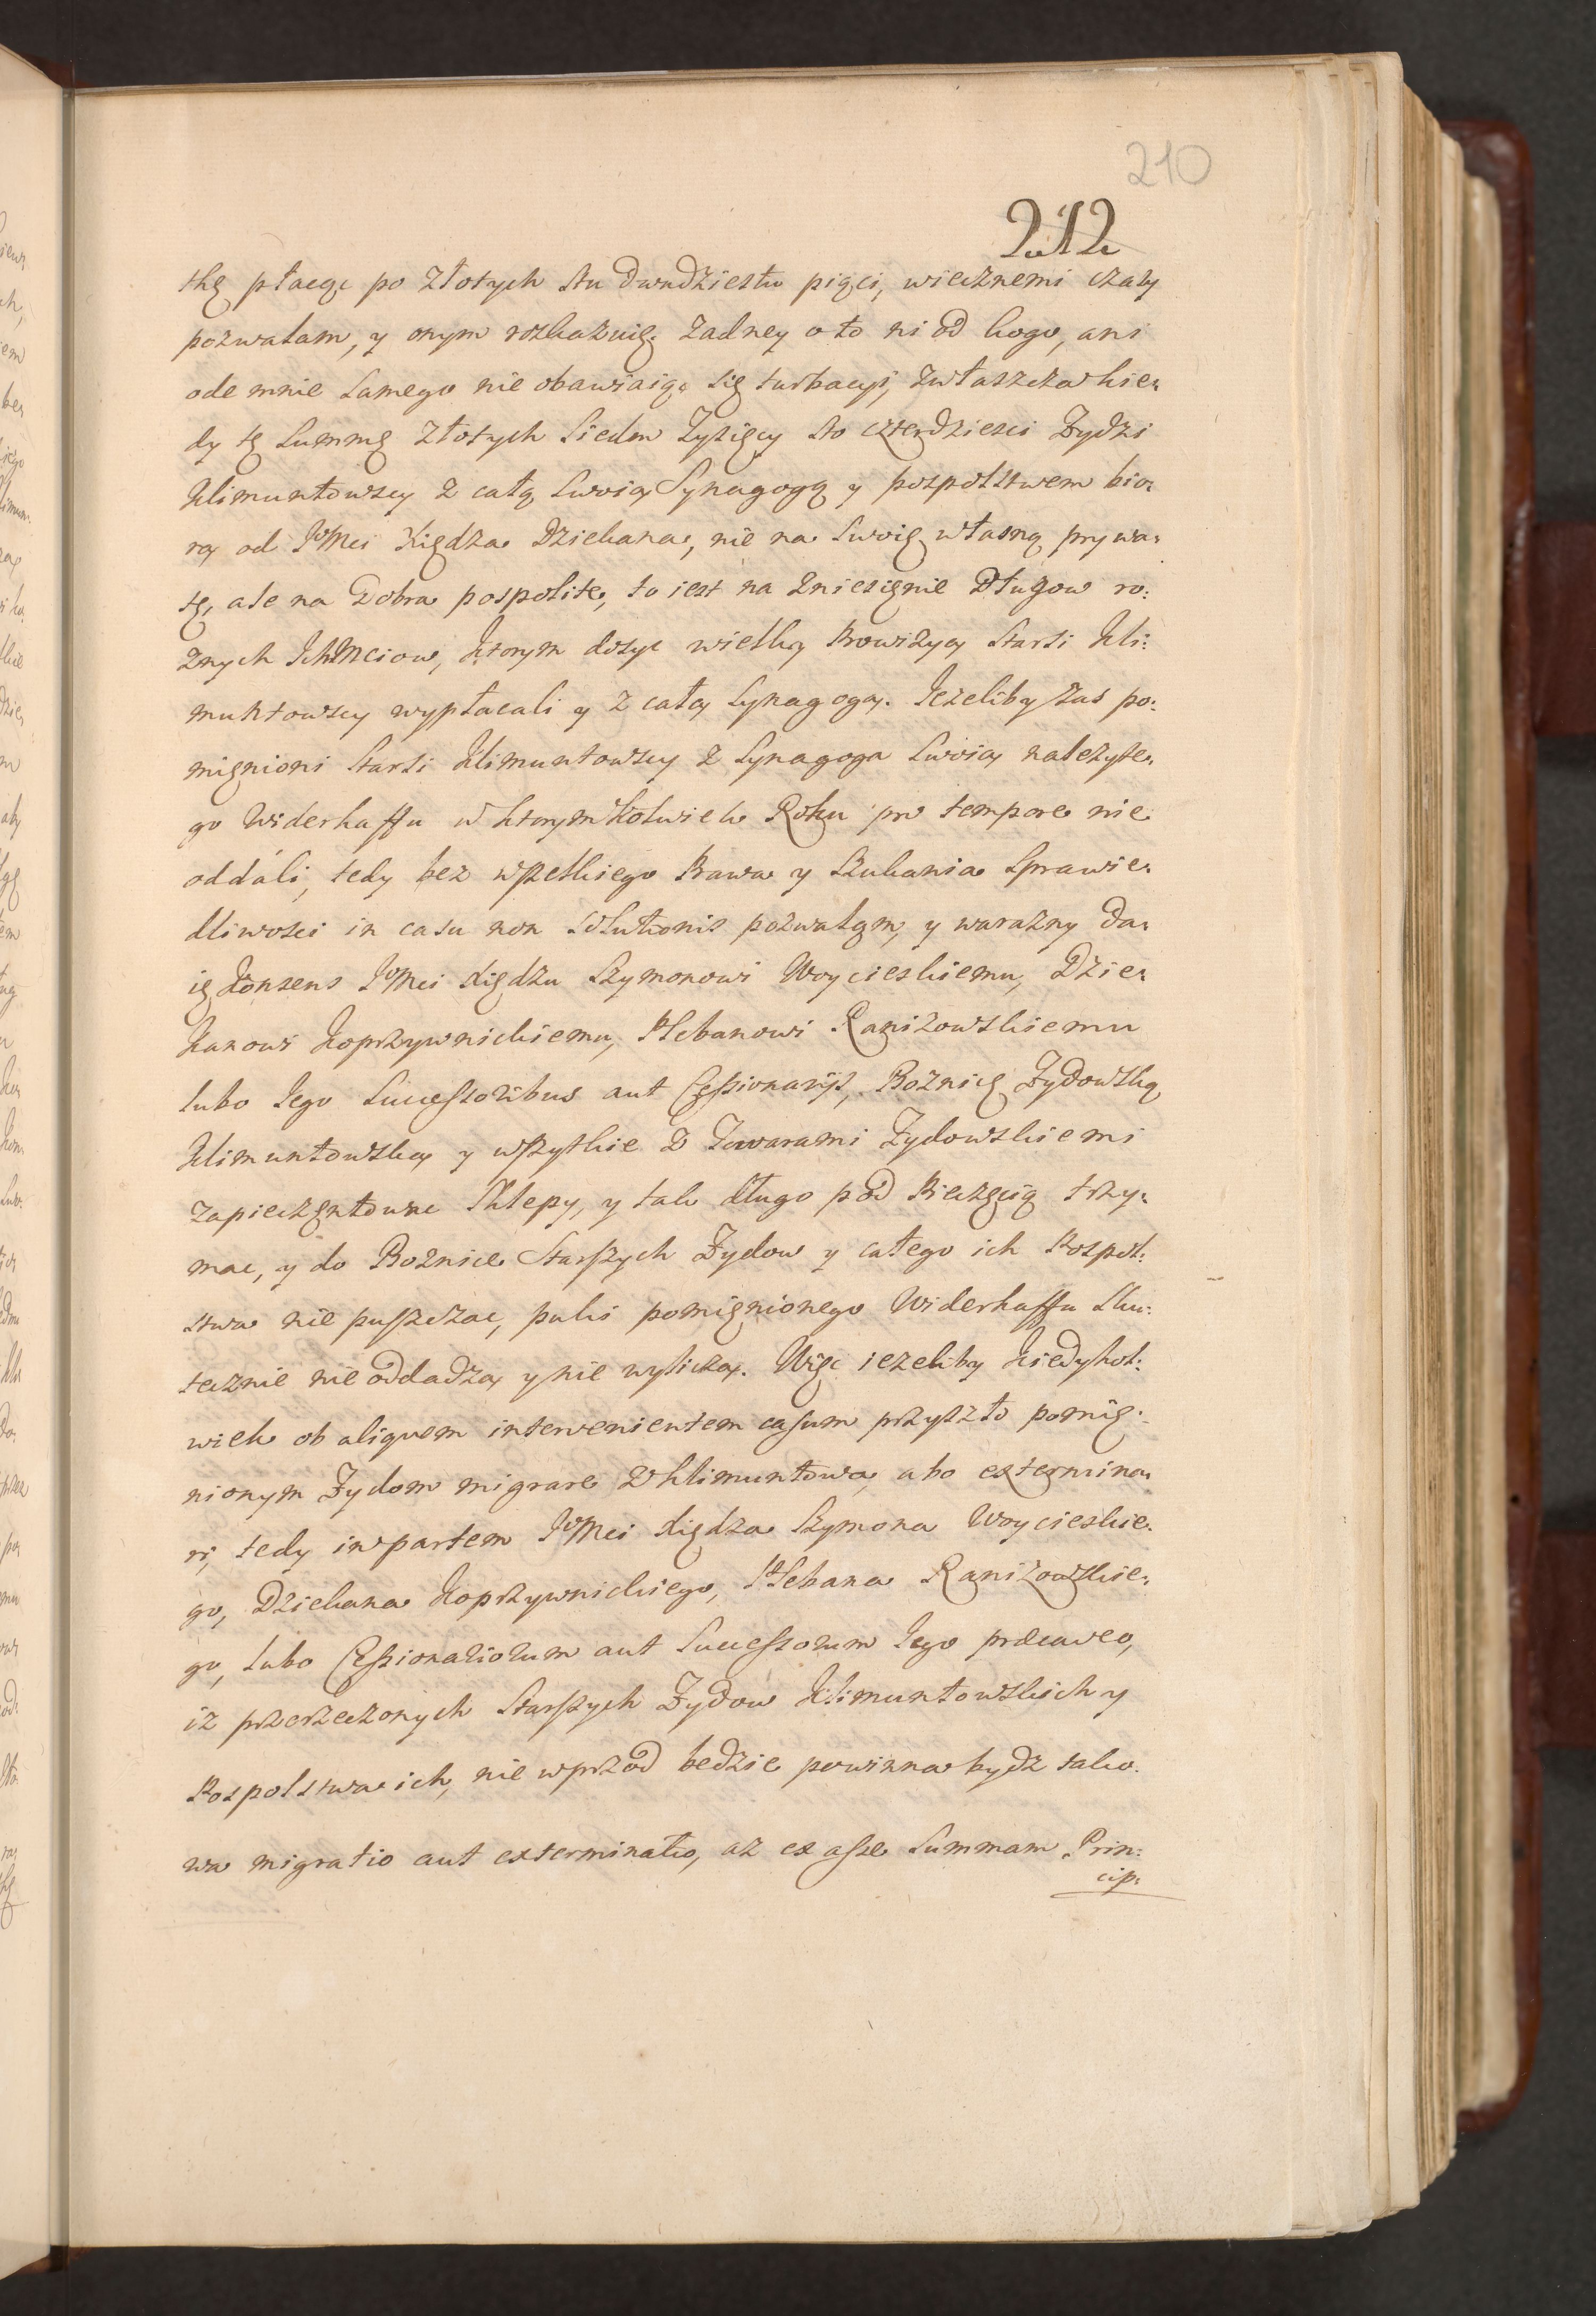 210
212
tkę płacąc po złotych stu dwudziestu pięci, wiecznemi czasy
pozwalam, y onym roskazuię, żadney o to ni od kogo, ani
ode mnie samego nie obawiaiąc się turbacyi, zwłaszcza kie-
dy tę summę złotych siedm tysięcy sto czterdziesci Żydzi
Klimuntowscy z całą swoią Synagogą y pospolstwem bio-
rą od JoMci Xiędza Dziekana, nie na swoię własną prywa-
tę, ale na dobra pospolite, to iest na zniesięnie Długow ro:
żnych IchMciow, ktorym dosyc wielką Prowizyą Starsi Kli:
muntowscy wypłacali y z całą Synagogą. Ieżeliby zas po:
mięnioni Starsi Klimuntowscy z Synagogą swoią należyte-
go Widerkaffu w ktorymkolwiek Roku pro tempore nie
oddali, tedy bez wszelkiego Prawa y szukania sprawie-
dliwosci in casu non solutionis pozwalam, y warażny da-
ię konsens JoMci Xiędzu Szymonowi Woycieskiemu, Dzie-
kanowi Koprzywnickiemu, Plebanowi Raniżowskiemu
lubo Iego Successoribus aut Cessionarijs, Bożnicę Żydowską
Klimuntowską y wszytkie z Towarami Żydowskiemi
zapieczętowac Sklepy, y tak długo pod Pieczęcią trzy-
mac, y do Bożnice Starszych Żydow y całego ich Pospol:
stwa nie puszczac, puki pomięnionego Widerkaffu sku:
tecznie nie oddadzą y nie wyliczą. Więc ieżeliby kiedykol:
wiek ob aliquem intervenientem casum przyszło pomię:
nionym Żydom migrare z Klimuntowa, abo extermina-
ri, tedy in partem JoMci Xiędza Szymona Woycieskie-
go, Dziekana Koprzywnickiego, Plebana Raniżowskie-
go, lubo Cessionariorum aut Successorum Iego praecaveo,
iż przerzeczonych Starszych Żydow Klimuntowskich y
Pospolstwa ich, nie wprzod bedzie powinna bydz tako-
wa migratio aut exterminatio, aż ex asse Summam Prin:
cip: